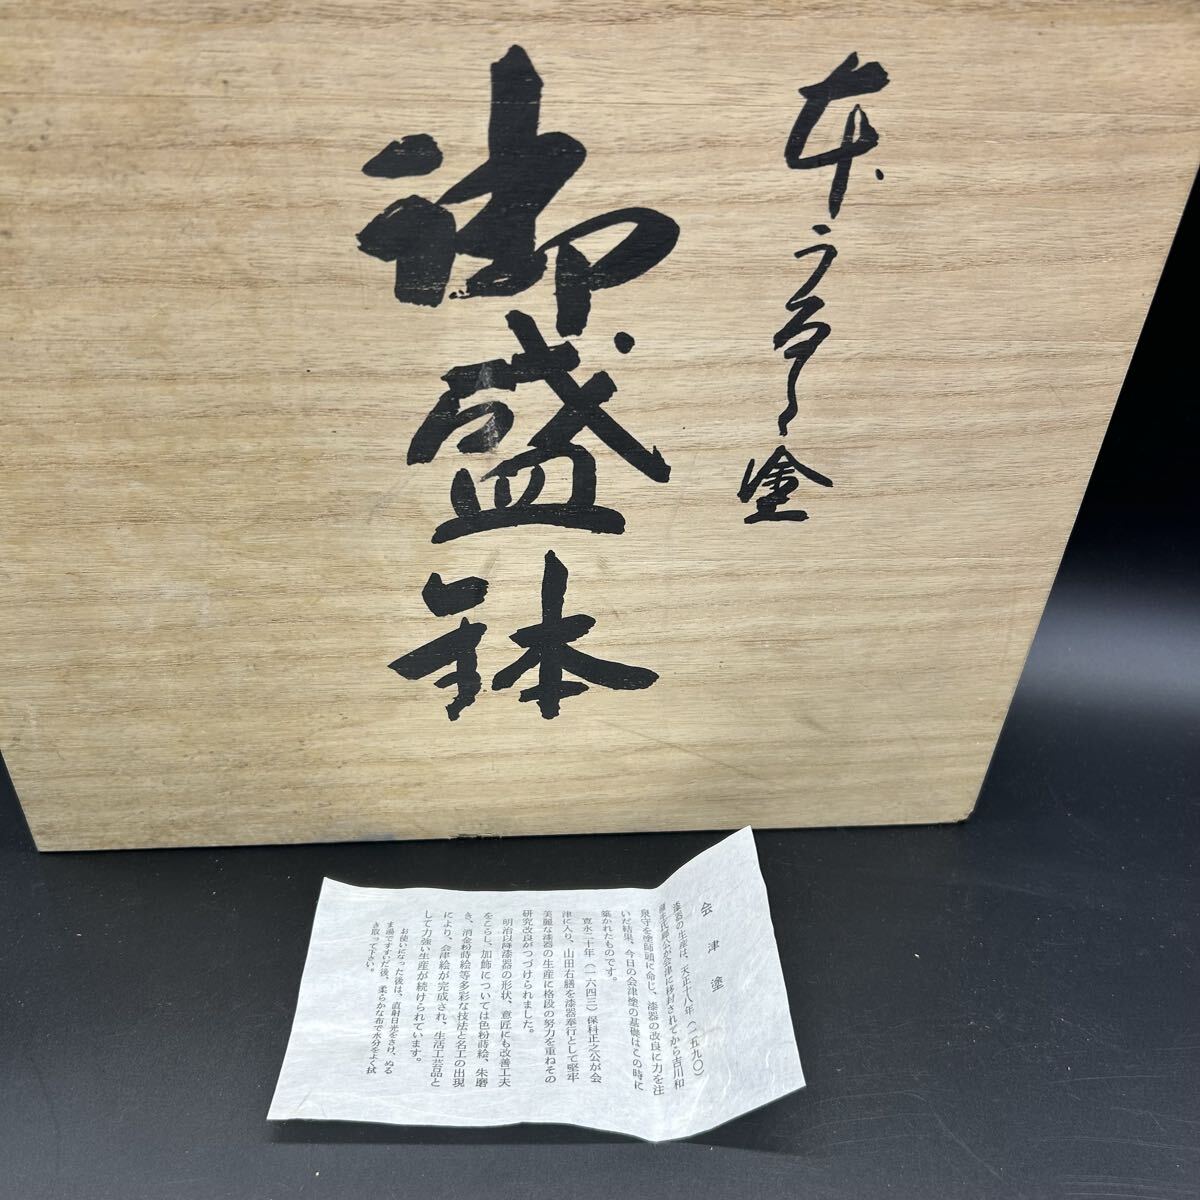 本うるし塗
御盛鉢
会津塗
漆器の生産は、天正十八年（一五九〇）
蒲生氏郷公が会津に移封されてから吉川和
泉守を塗師頭に命じ、漆器の改良に力を注
いだ結果、今日の会津塗の基礎はこの時に
築かれたものです。
寛永二十年（一六四三）保科正之公が会
津に入り、山田右膳を漆器奉行として堅牢
美麗な漆器の生産に格段の努力を重ねその
研究改良がつづけられました。
明治以降漆器の形状、意匠にも改善工夫
をこらし、加飾については色粉蒔絵、朱磨
き、消金粉蒔絵等多彩な技法と名工の出現
により、会津絵が完成され、生活工芸品と
して力強い生産が続けられています。
お使いになった後は、直射日光をさけ、ぬる
ま湯ですすいだ後、柔らかな布で水分をよく拭
き取って下さい。